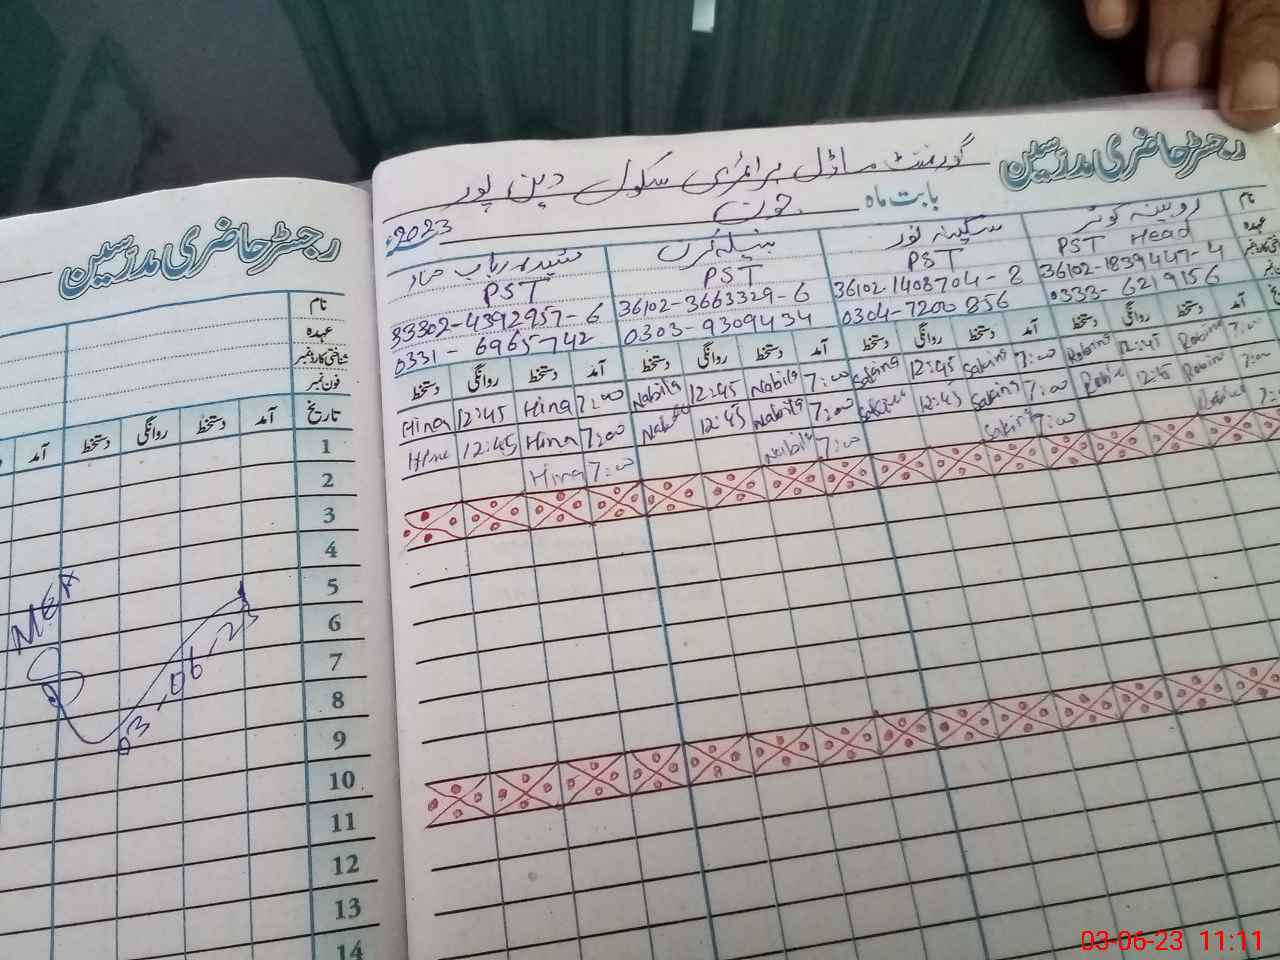 رجسٹر حاضری مدرسین
گورنمنٹ ماڈل پرائمری سکول دین پور
بابت ماہ جون 2023
نام روبینہ کوثر سکینہ نور نبیلہ
عہدہ PST Head PST PST PST
36102-1839447-4 36102-1408704-8 36102-3663329-6 33302-4392957-6
0333-6219156 0304-7200856 0303-9309434 0331-6965742
آمد دستخط روانگی دستخط آمد دستخط روانگی دستخط آمد دستخط روانگی دستخط آمد دستخط روانگی دستخط
7:00 Robina 12:45 Robina 7:00 Sakina 12:45 Sakina 7:00 Nabila 12:45 Nabila 7:00 Hina 12:45 Hina
7:00 Robina 12:45 7:00 Sakina 12:45 7:00 Nabila 12:45 7:00 Hina 12:45 Hina
7:00 Sakina 7:00 Nabila 7:00 Hina
رجسٹر حاضری مدرسین
نام
عہدہ
شناختی کارڈ نمبر
فون نمبر
تاریخ آمد دستخط روانگی دستخط آمد
1
2
3
4
5
6
7
8
9
10
11
12
13
14
03-06-23
03-06-23 11:11